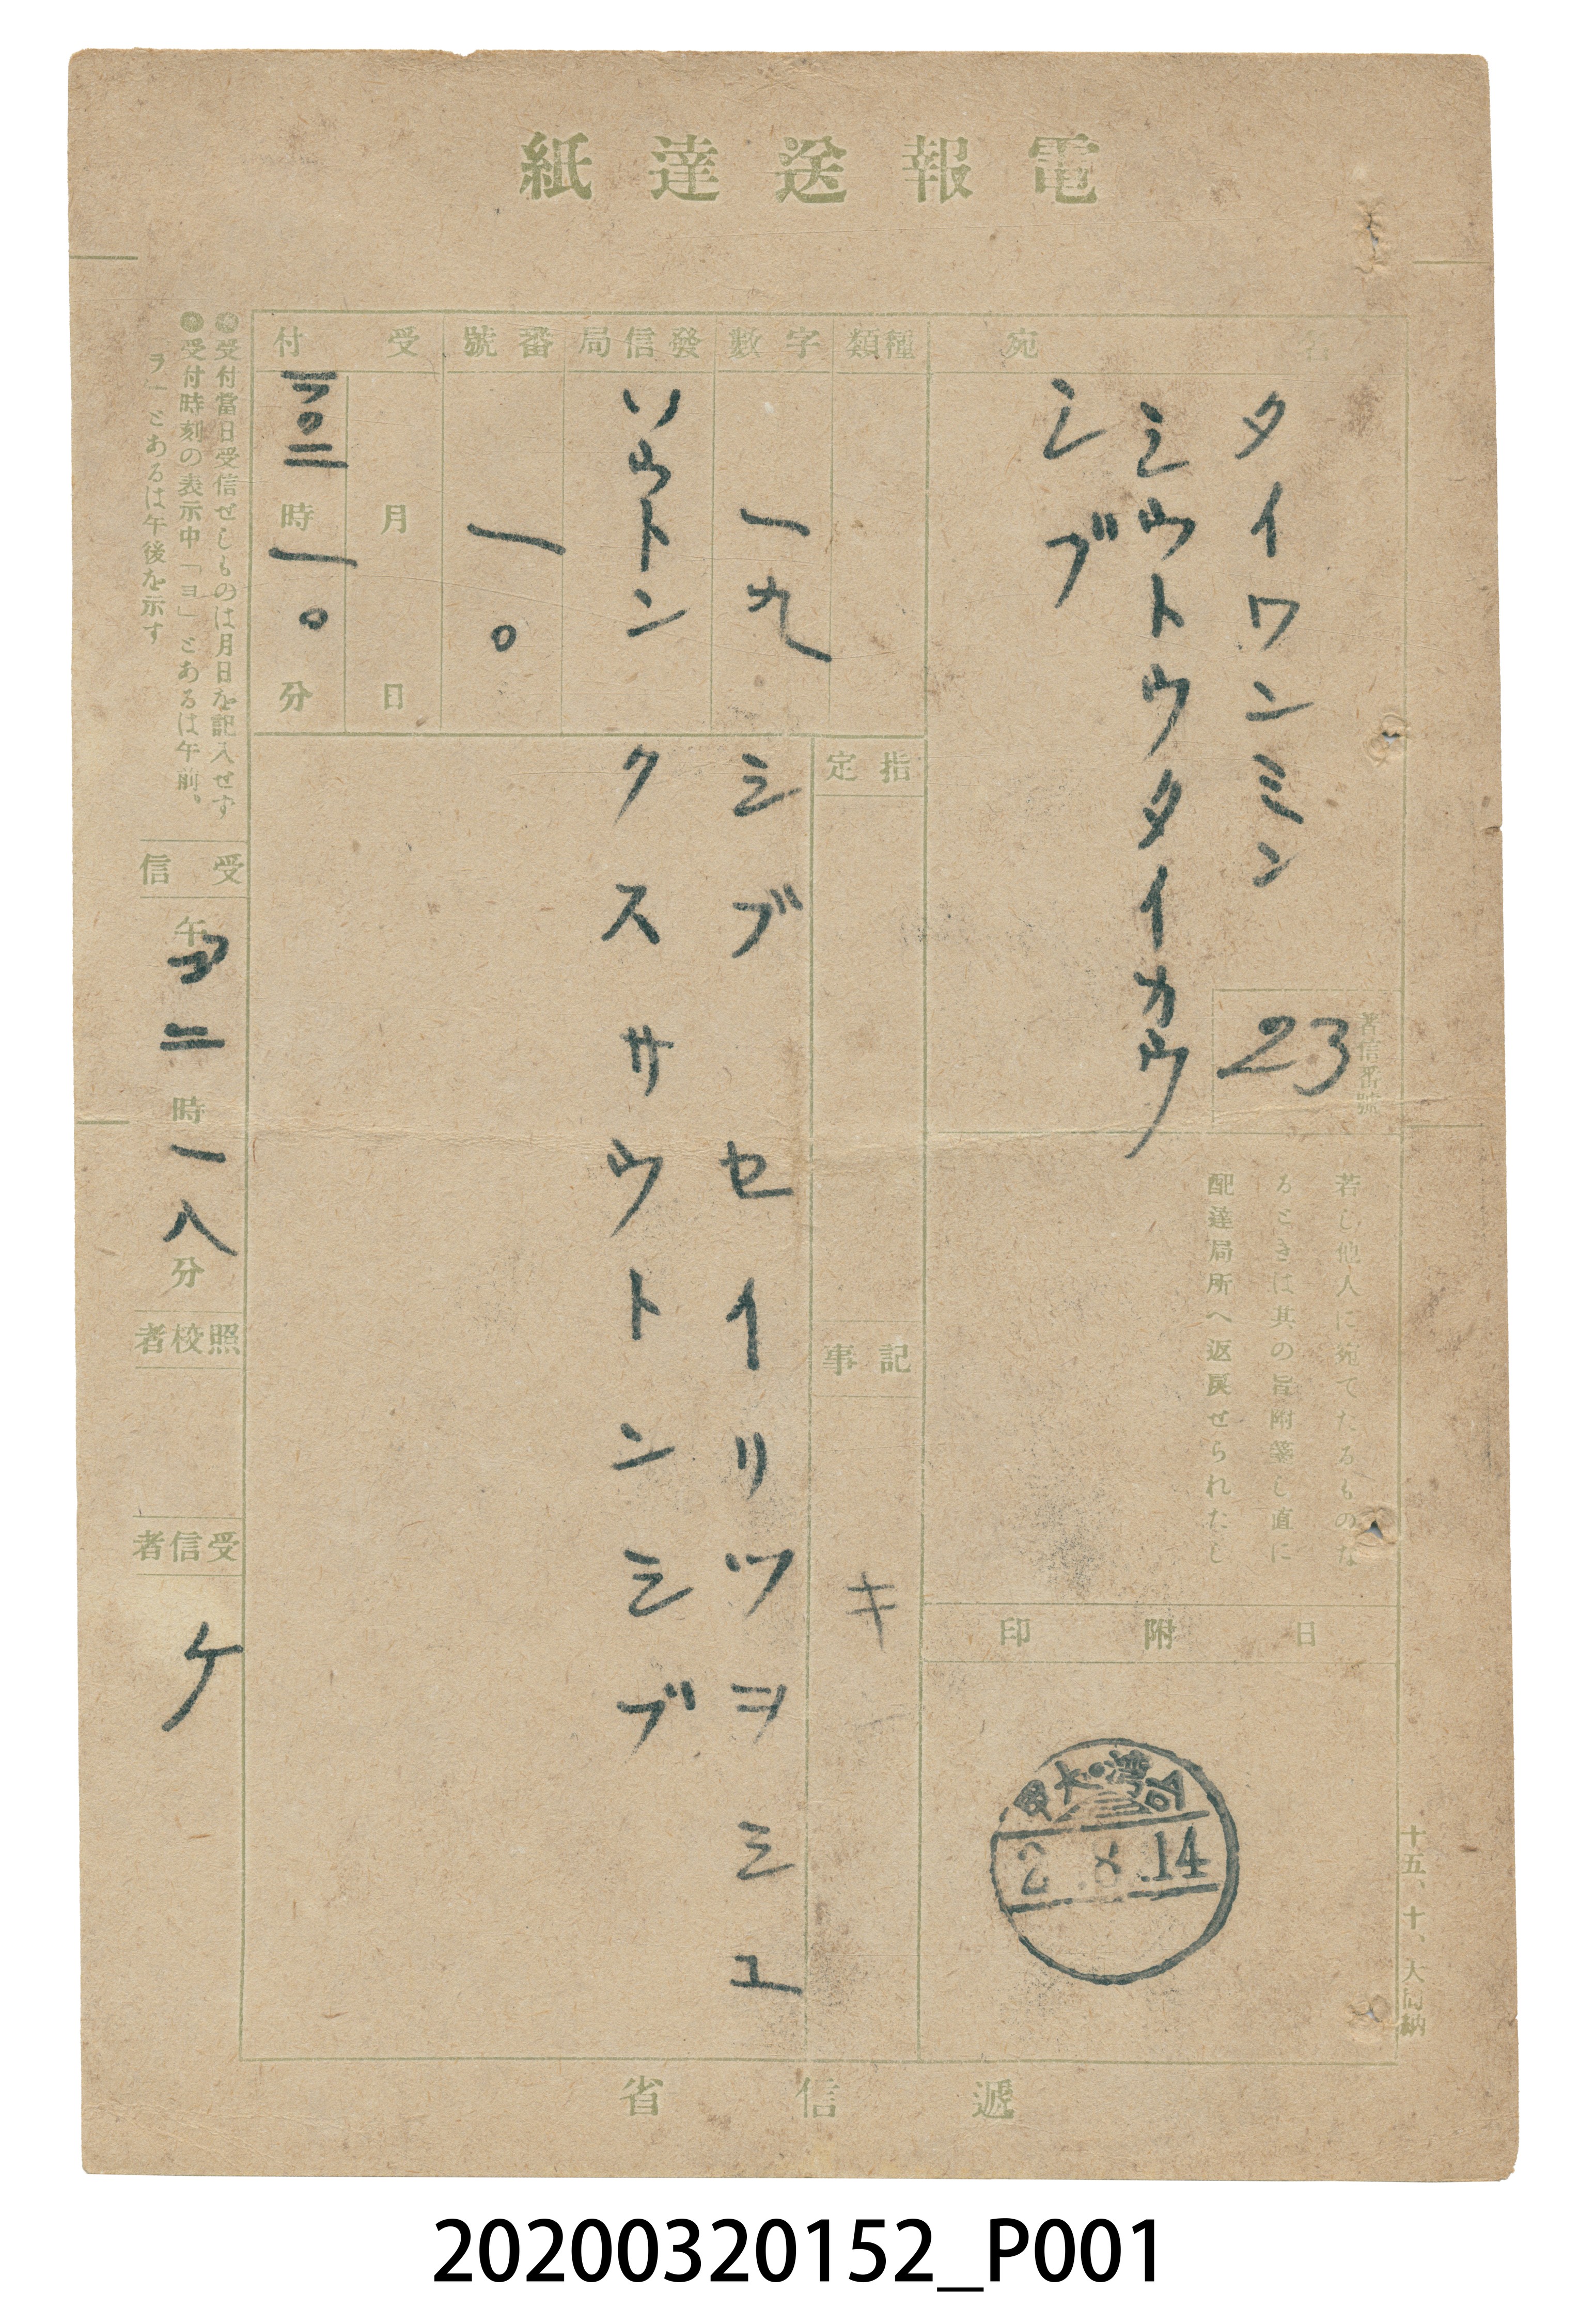 電報送達紙
宛名
タイワンミン
シウトウタイカウ
シブ
著信番號
23
種類
字數
一九
發信局
ソウトン
番號
一〇
受付
月日
時一〇分
指定
記事
キ
シブ セイリツヲシユ
クスサウトンシブ
若し他人に宛てたるものな
るときは其の旨附箋し直に
配達局所へ返戻せられたし
日附印
台灣・大甲
2.8.14
◉受付當日受信せしものは月日を記入せず
◉受付時刻の表示中「ヨ」とあるは午前、
受信
午 二時一八分
照校者
受信者
ケ
十五、十、大
遞信省
20200320152_P001